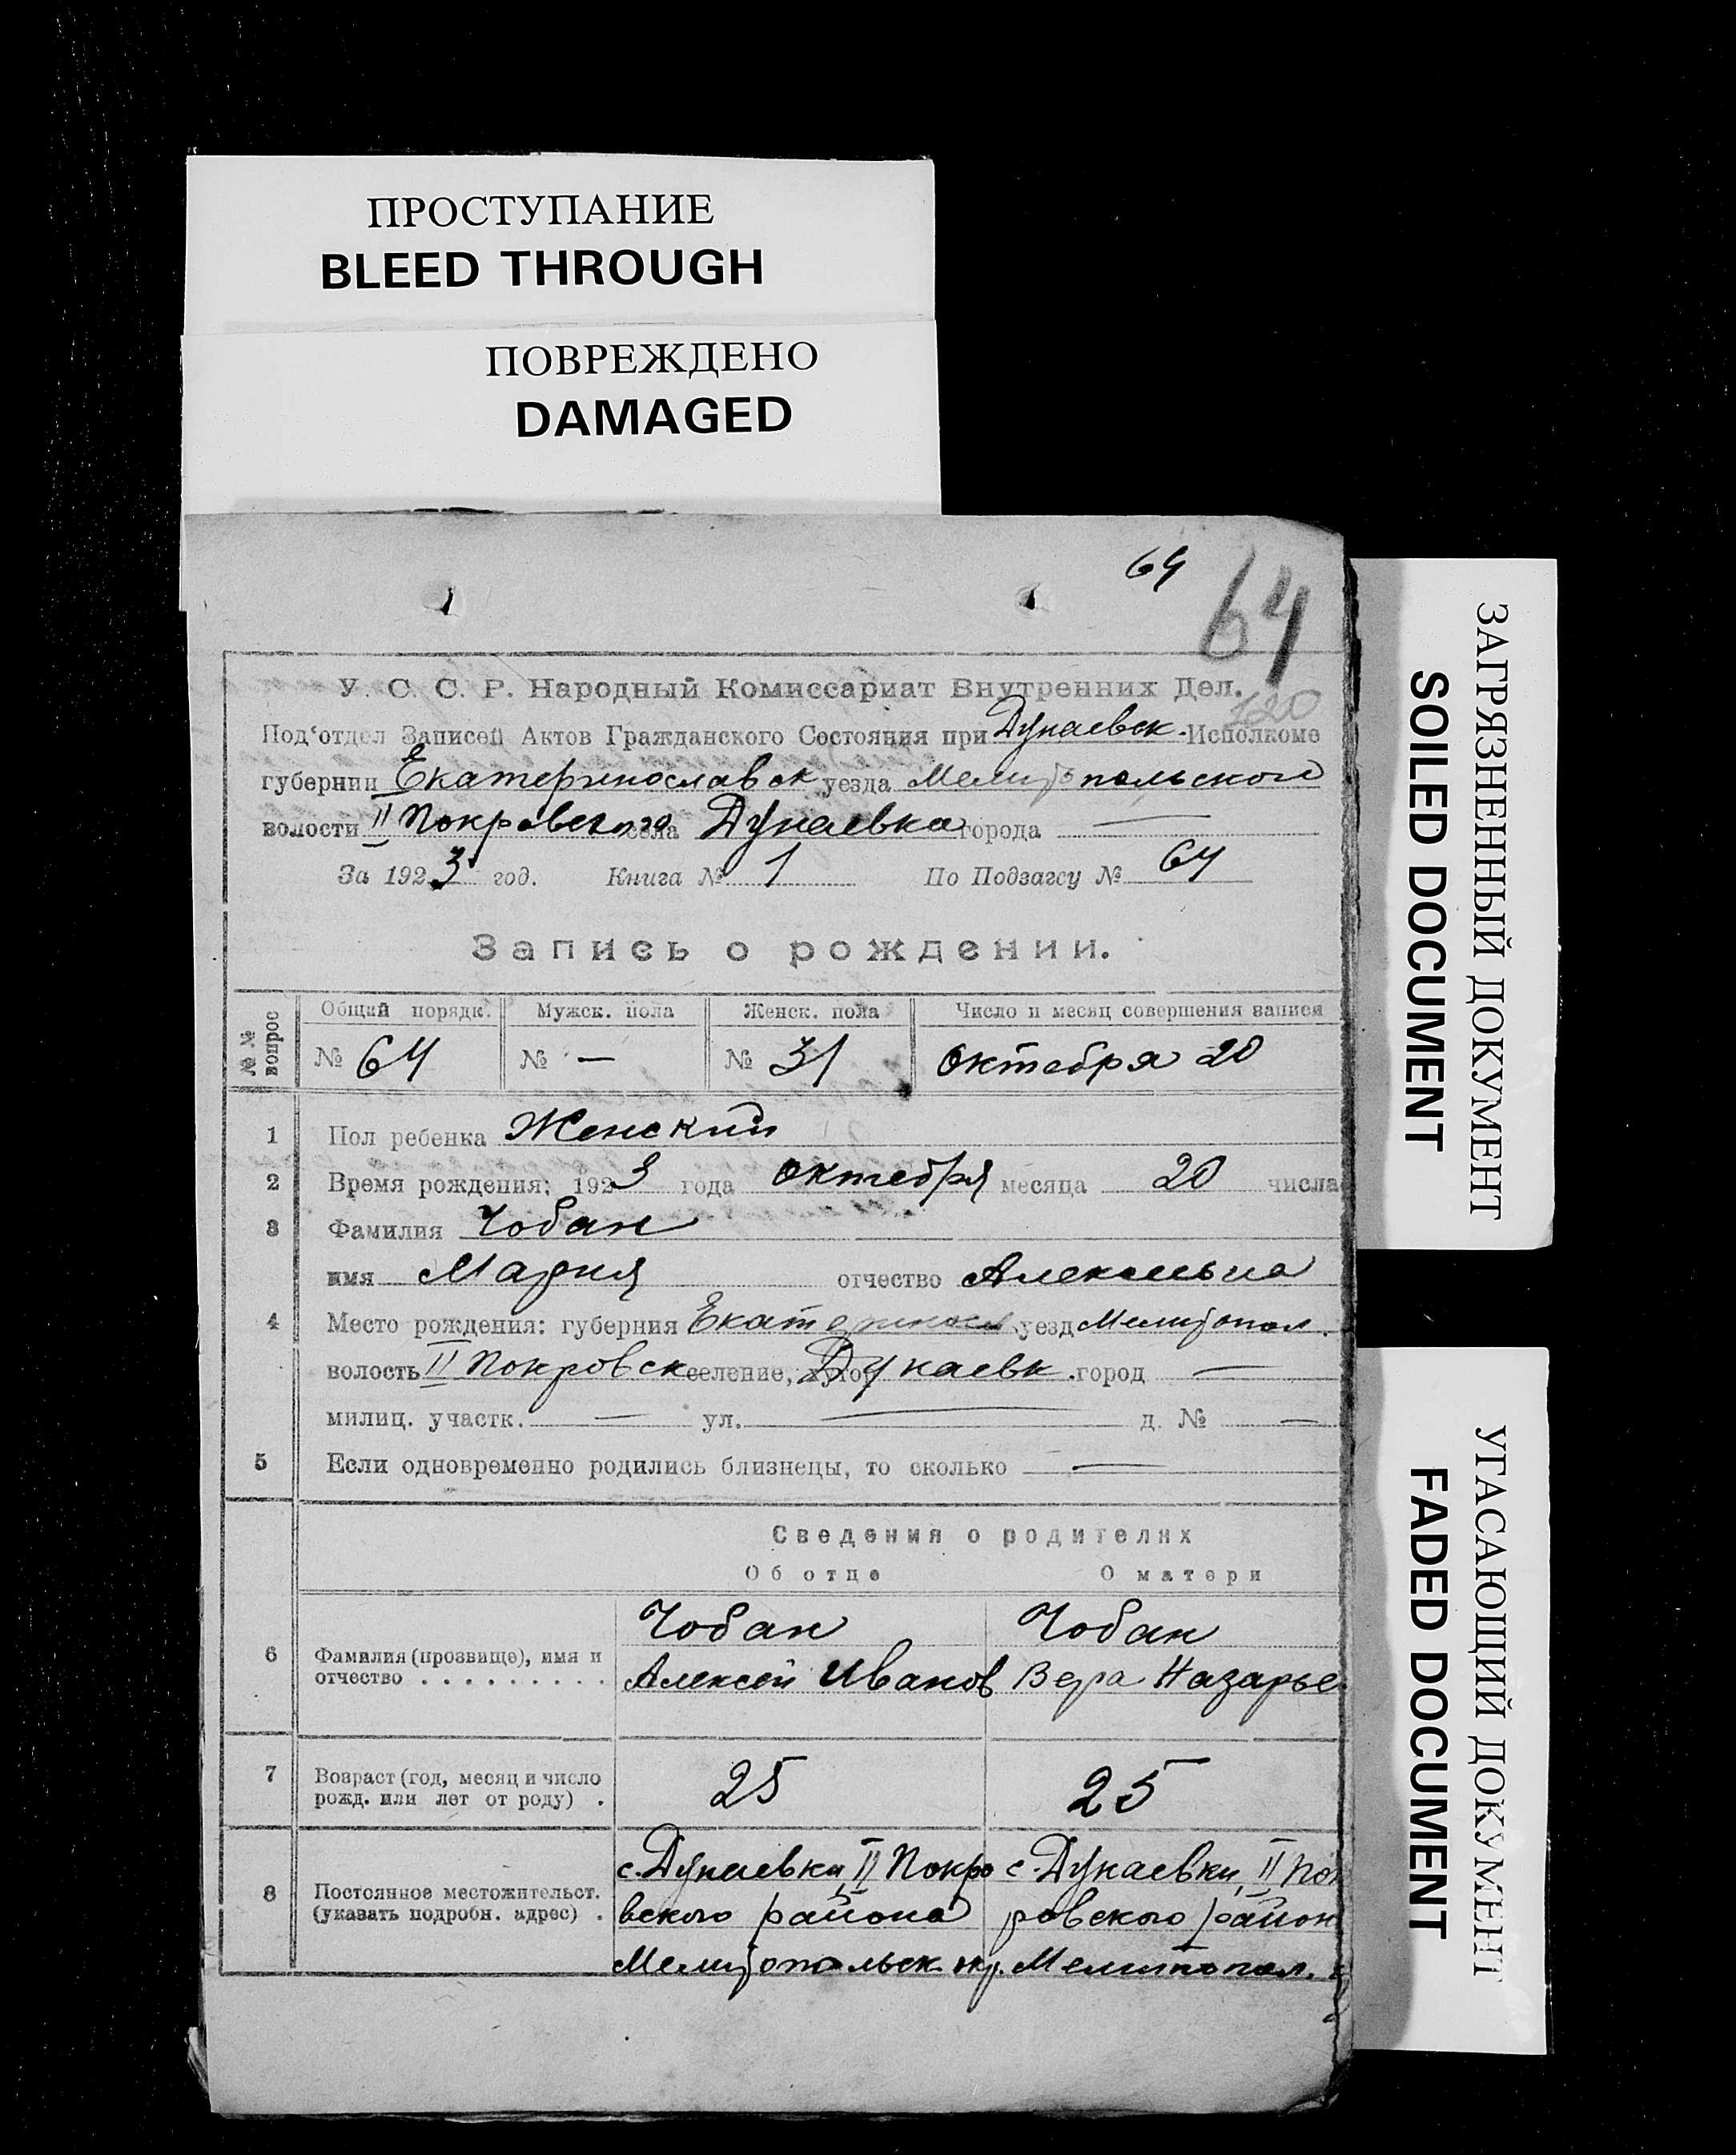 ПРОСТУПАНИЕ
BLEED THROUGH
ПОВРЕЖДЕНО
DAMAGED
64
64
120
У. С. С. Р. Народный Комиссариат Внутренних Дел.
Под‘отдел Записей Актов Гражданского Состояния при Дунаевск. Исполкоме
губернии Екатеринославск уезда Мелитопольского
волости II Покровского села Дунаевка города —
За 1923 год. Книга № 1 По Подзагсу № 64
Запись о рождении.
№№ вопросов
Общий порядк. Мужск. пола Женск. пола Число и месяц совершения записи
№ 64 № — № 31 Октября 20
1 Пол ребенка Женский
2 Время рождения: 1923 года октября месяца 20 числа
3 Фамилия Чобан
имя Мария отчество Алексеевна
4 Место рождения: губерния Екатеринославск. уезд Мелитопол.
волость II Покровск селение, хутор Дунаевк. город —
милиц. участк. — ул. — д. № —
5 Если одновременно родились близнецы, то сколько —
Сведения о родителях
Об отце О матери
Чобан Чобан
6 Фамилия (прозвище), имя и
отчество . . . . . . . . . Алексей Иванов Вера Назарье
7 Возраст (год, месяц и число
рожд. или лет от роду) . 25 25
с. Дунаевки II Покро с. Дунаевки, II Пок
8 Постоянное местожительст.
(указать подробн. адрес) . вского района ровского район
Мелитопольск. окр. Мелитопол.
ЗАГРЯЗНЕННЫЙ ДОКУМЕНТ
SOILED DOCUMENT
УГАСАЮЩИЙ ДОКУМЕНТ
FADED DOCUMENT